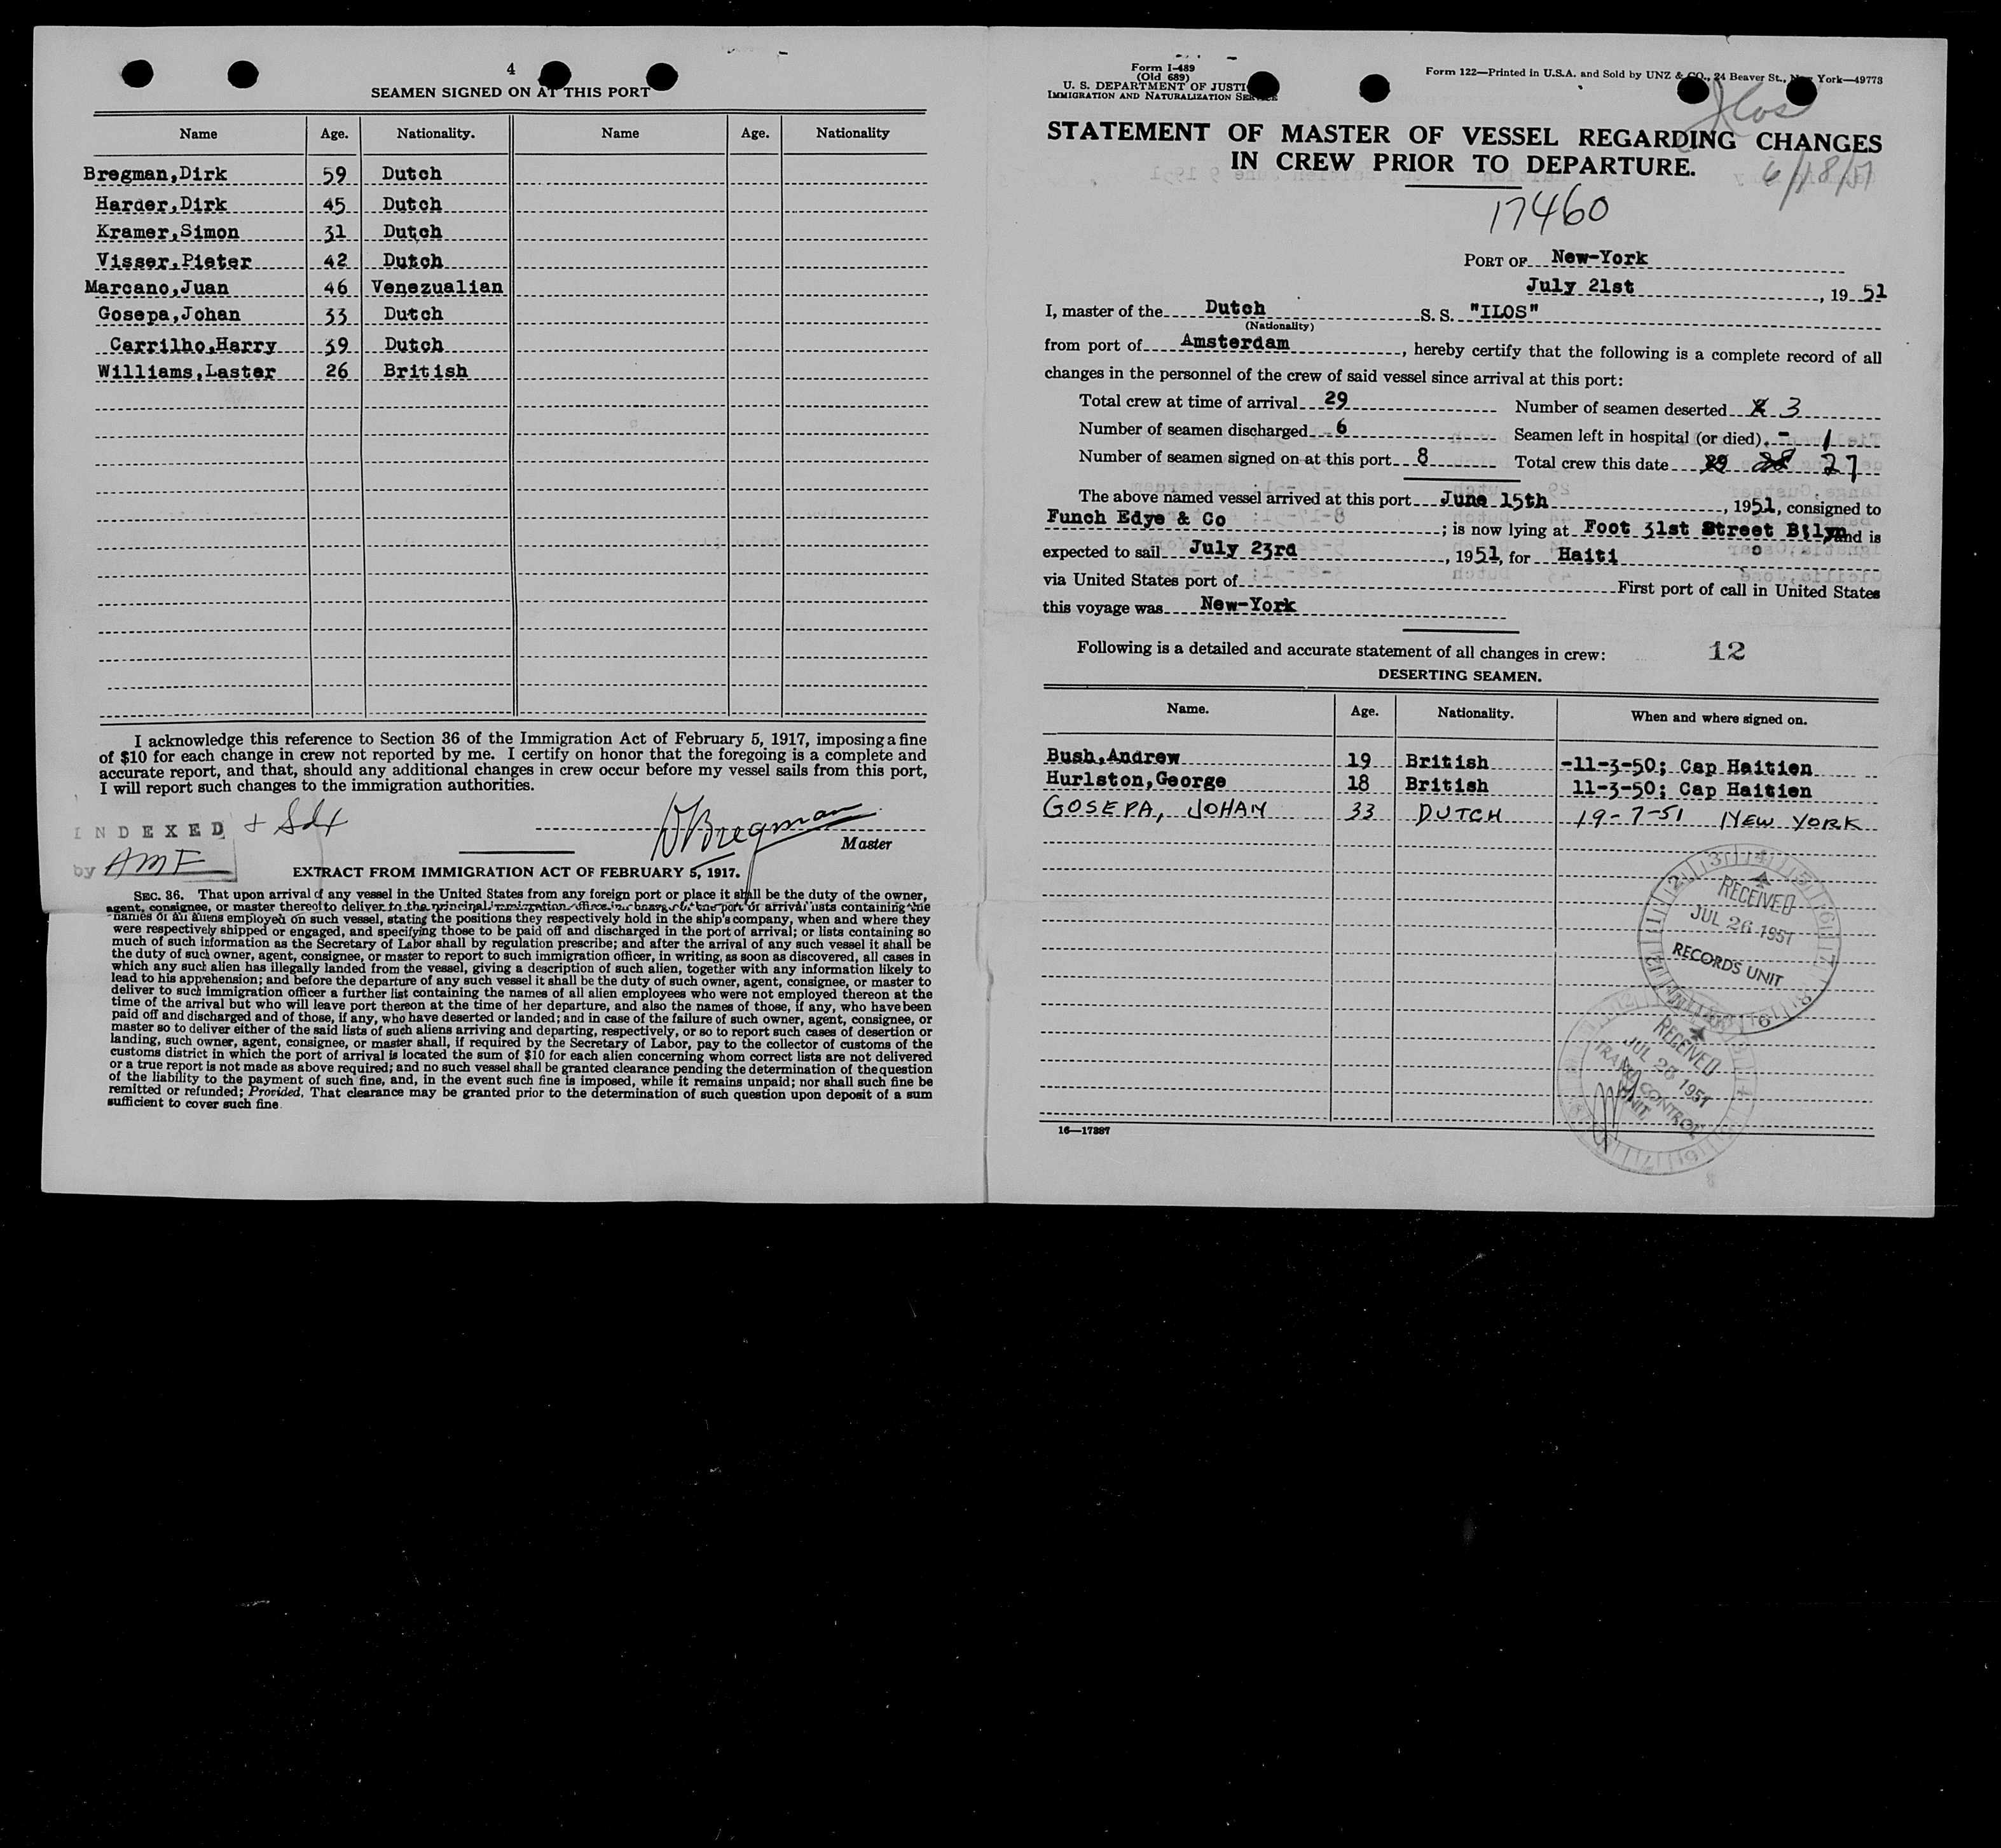 4
SEAMEN SIGNED ON AT THIS PORT
Name Age. Nationality. Name Age. Nationality
Bregman,Dirk 59 Dutch
Harder,Dirk 45 Dutch
Kramer,Simon 31 Dutch
Visser,Pieter 42 Dutch
Marcano,Juan 46 Venezualian
Gosepa,Johan 33 Dutch
Carrilho,Harry 39 Dutch
Williams,Laster 26 British
I acknowledge this reference to Section 36 of the Immigration Act of February 5, 1917, imposing a fine
of $10 for each change in crew not reported by me. I certify on honor that the foregoing is a complete and
accurate report, and that, should any additional changes in crew occur before my vessel sails from this port,
I will report such changes to the immigration authorities.
INDEXED
DBregman
Master
by AMF
EXTRACT FROM IMMIGRATION ACT OF FEBRUARY 5, 1917.
SEC. 36. That upon arrival of any vessel in the United States from any foreign port or place it shall be the duty of the owner,
agent, consignee, or master thereof to deliver to the principal immigration officer in charge of the port of arrival lists containing the
names of all aliens employed on such vessel, stating the positions they respectively hold in the ship's company, when and where they
were respectively shipped or engaged, and specifying those to be paid off and discharged in the port of arrival; or lists containing so
much of such information as the Secretary of Labor shall by regulation prescribe; and after the arrival of any such vessel it shall be
the duty of such owner, agent, consignee, or master to report to such immigration officer, in writing, as soon as discovered, all cases in
which any such alien has illegally landed from the vessel, giving a description of such alien, together with any information likely to
lead to his apprehension; and before the departure of any such vessel it shall be the duty of such owner, agent, consignee, or master to
deliver to such immigration officer a further list containing the names of all alien employees who were not employed thereon at the
time of the arrival but who will leave port thereon at the time of her departure, and also the names of those, if any, who have been
paid off and discharged and of those, if any, who have deserted or landed; and in case of the failure of such owner, agent, consignee, or
master so to deliver either of the said lists of such aliens arriving and departing, respectively, or so to report such cases of desertion or
landing, such owner, agent, consignee, or master shall, if required by the Secretary of Labor, pay to the collector of customs of the
customs district in which the port of arrival is located the sum of $10 for each alien concerning whom correct lists are not delivered
or a true report is not made as above required; and no such vessel shall be granted clearance pending the determination of the question
of the liability to the payment of such fine, and, in the event such fine is imposed, while it remains unpaid; nor shall such fine be
remitted or refunded; Provided, That clearance may be granted prior to the determination of such question upon deposit of a sum
sufficient to cover such fine.
Form I-489
(Old 689)
U. S. DEPARTMENT OF JUSTI
IMMIGRATION AND NATURALIZATION SERVICE
Form 122—Printed in U.S.A. and Sold by UNZ & CO., 24 Beaver St., New York—49773
Ilos
STATEMENT OF MASTER OF VESSEL REGARDING CHANGES
IN CREW PRIOR TO DEPARTURE.
6/18/51
17460
PORT OF New-York
July 21st, 1951
I, master of the Dutch S. S. "ILOS"
(Nationality)
from port of Amsterdam, hereby certify that the following is a complete record of all
changes in the personnel of the crew of said vessel since arrival at this port:
Total crew at time of arrival 29 Number of seamen deserted 3
Number of seamen discharged 6 Seamen left in hospital (or died) - 1
Number of seamen signed on at this port 8 Total crew this date 29 28 27
The above named vessel arrived at this port June 15th, 1951, consigned to
Funch Edye & Co; is now lying at Foot 31st Street Bklyn and is
expected to sail July 23rd, 1951, for Haiti
via United States port of First port of call in United States
this voyage was New-York
Following is a detailed and accurate statement of all changes in crew: 12
DESERTING SEAMEN.
Name. Age. Nationality. When and where signed on.
Bush,Andrew 19 British -11-3-50; Cap Haitien
Hurlston,George 18 British 11-3-50; Cap Haitien
GOSEPA, JOHAN 33 DUTCH 19-7-51 NEW YORK
RECEIVED
JUL 26 1951
RECORDS UNIT
RECEIVED
JUL 26 1951
CONTROL
UNIT
16—17887